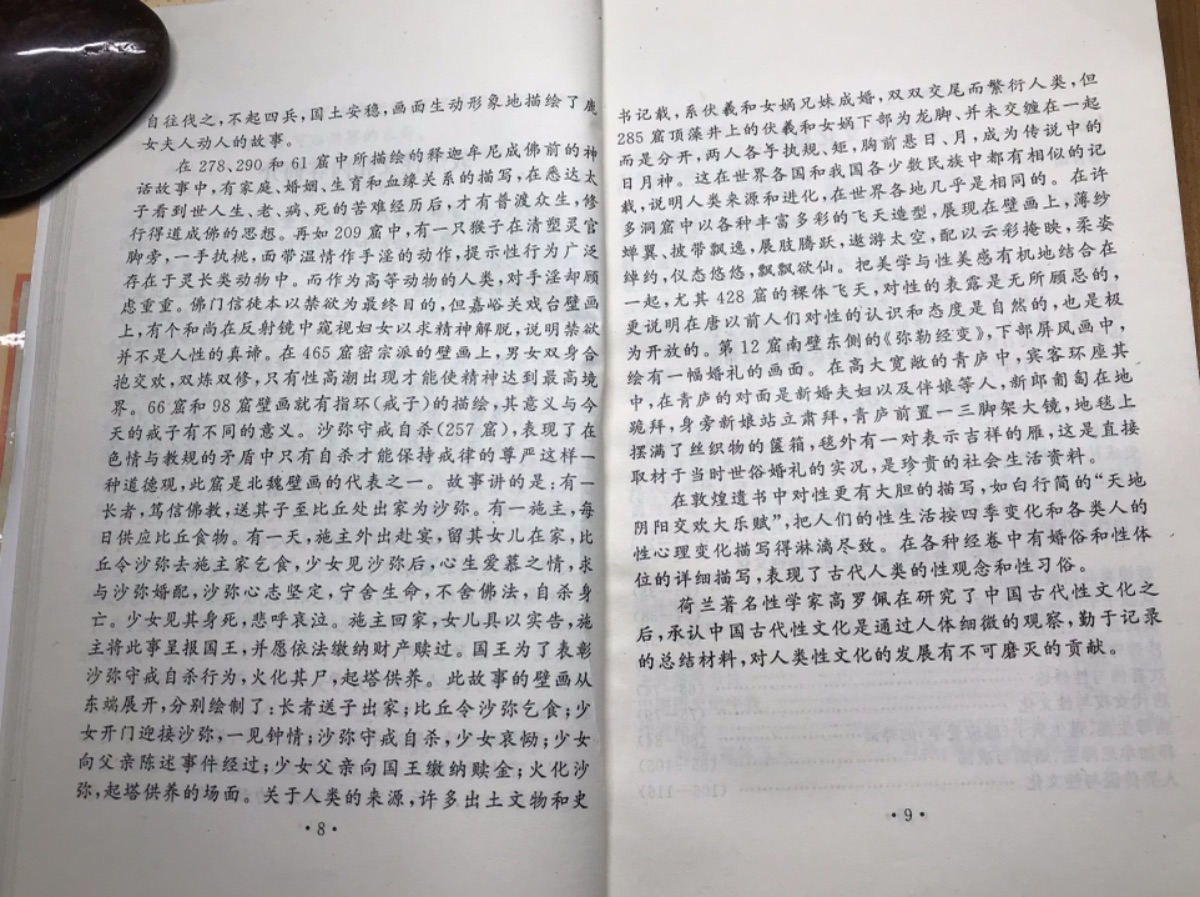 自往伐之,不起四兵,国土安稳,画面生动形象地描绘了鹿
女夫人动人的故事。
在278、290和61窟中所描绘的释迦牟尼成佛前的神
话故事中,有家庭、婚姻、生育和血缘关系的描写,在悉达太
子看到世人生、老、病、死的苦难经历后,才有普渡众生,修
行得道成佛的思想。再如209窟中,有一只猴子在清塑灵官
脚旁,一手执桃,面带温情作手淫的动作,提示性行为广泛
存在于灵长类动物中。而作为高等动物的人类,对手淫却顾
虑重重。佛门信徒本以禁欲为最终目的,但嘉峪关戏台壁画
上,有个和尚在反射镜中窥视妇女以求精神解脱,说明禁欲
并不是人性的真谛。在465窟密宗派的壁画上,男女双身合
抱交欢,双炼双修,只有性高潮出现才能使精神达到最高境
界。66窟和98窟壁画就有指环(戒子)的描绘,其意义与今
天的戒子有不同的意义。沙弥守戒自杀(257窟),表现了在
色情与教规的矛盾中只有自杀才能保持戒律的尊严这样一
种道德观,此窟是北魏壁画的代表之一。故事讲的是:有一
长者,笃信佛教,送其子至比丘处出家为沙弥。有一施主,每
日供应比丘食物。有一天,施主外出赴宴,留其女儿在家,比
丘令沙弥去施主家乞食,少女见沙弥后,心生爱慕之情,求
与沙弥婚配,沙弥心志坚定,宁舍生命,不舍佛法,自杀身
亡。少女见其身死,悲呼哀泣。施主回家,女儿具以实告,施
主将此事呈报国王,并愿依法缴纳财产赎过。国王为了表彰
沙弥守戒自杀行为,火化其尸,起塔供养。此故事的壁画从
东端展开,分别绘制了:长者送子出家;比丘令沙弥乞食;少
女开门迎接沙弥,一见钟情;沙弥守戒自杀,少女哀恸;少女
向父亲陈述事件经过;少女父亲向国王缴纳赎金;火化沙
弥,起塔供养的场面。关于人类的来源,许多出土文物和史
·8·
书记载,系伏羲和女娲兄妹成婚,双双交尾而繁衍人类,但
285窟顶藻井上的伏羲和女娲下部为龙脚、并未交缠在一起
而是分开,两人各手执规、矩,胸前悬日、月,成为传说中的
日月神。这在世界各国和我国各少数民族中都有相似的记
载,说明人类来源和进化,在世界各地几乎是相同的。在许
多洞窟中以各种丰富多彩的飞天造型,展现在壁画上,薄纱
蝉翼、披带飘逸,展肢腾跃,遨游太空,配以云彩掩映,柔姿
绰约,仪态悠悠,飘飘欲仙。把美学与性美感有机地结合在
一起,尤其428窟的裸体飞天,对性的表露是无所顾忌的,
更说明在唐以前人们对性的认识和态度是自然的,也是极
为开放的。第12窟南壁东侧的《弥勒经变》,下部屏风画中,
绘有一幅婚礼的画面。在高大宽敞的青庐中,宾客环座其
中,在青庐的对面是新婚夫妇以及伴娘等人,新郎匍匐在地
跪拜,身旁新娘站立肃拜,青庐前置一三脚架大镜,地毯上
摆满了丝织物的箧箱,毯外有一对表示吉祥的雁,这是直接
取材于当时世俗婚礼的实况,是珍贵的社会生活资料。
在敦煌遗书中对性更有大胆的描写,如白行简的“天地
阴阳交欢大乐赋”,把人们的性生活按四季变化和各类人的
性心理变化描写得淋漓尽致。在各种经卷中有婚俗和性体
位的详细描写,表现了古代人类的性观念和性习俗。
荷兰著名性学家高罗佩在研究了中国古代性文化之
后,承认中国古代性文化是通过人体细微的观察,勤于记录
的总结材料,对人类性文化的发展有不可磨灭的贡献。
·9·